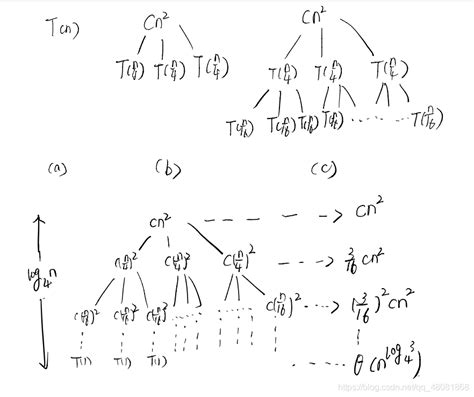 T(n)
Cn²
T(n/4) T(n/4) T(n/4)
Cn²
T(n/4) T(n/4) T(n/4)
T(n/16) T(n/16) T(n/16) T(n/16) ...... T(n/16)
(a) (b) (c)
cn² ----> cn²
C(n/4)² C(n/4)² C(n/4)² ---> 3/16 cn²
C(n/16)² C(n/16)² C(n/16)² C(n/16)² ....> (3/16)² cn²
log₄n
T(1) T(1) T(1) ...... θ(n^log₄3)
https://blog.csdn.net/qq_48081868